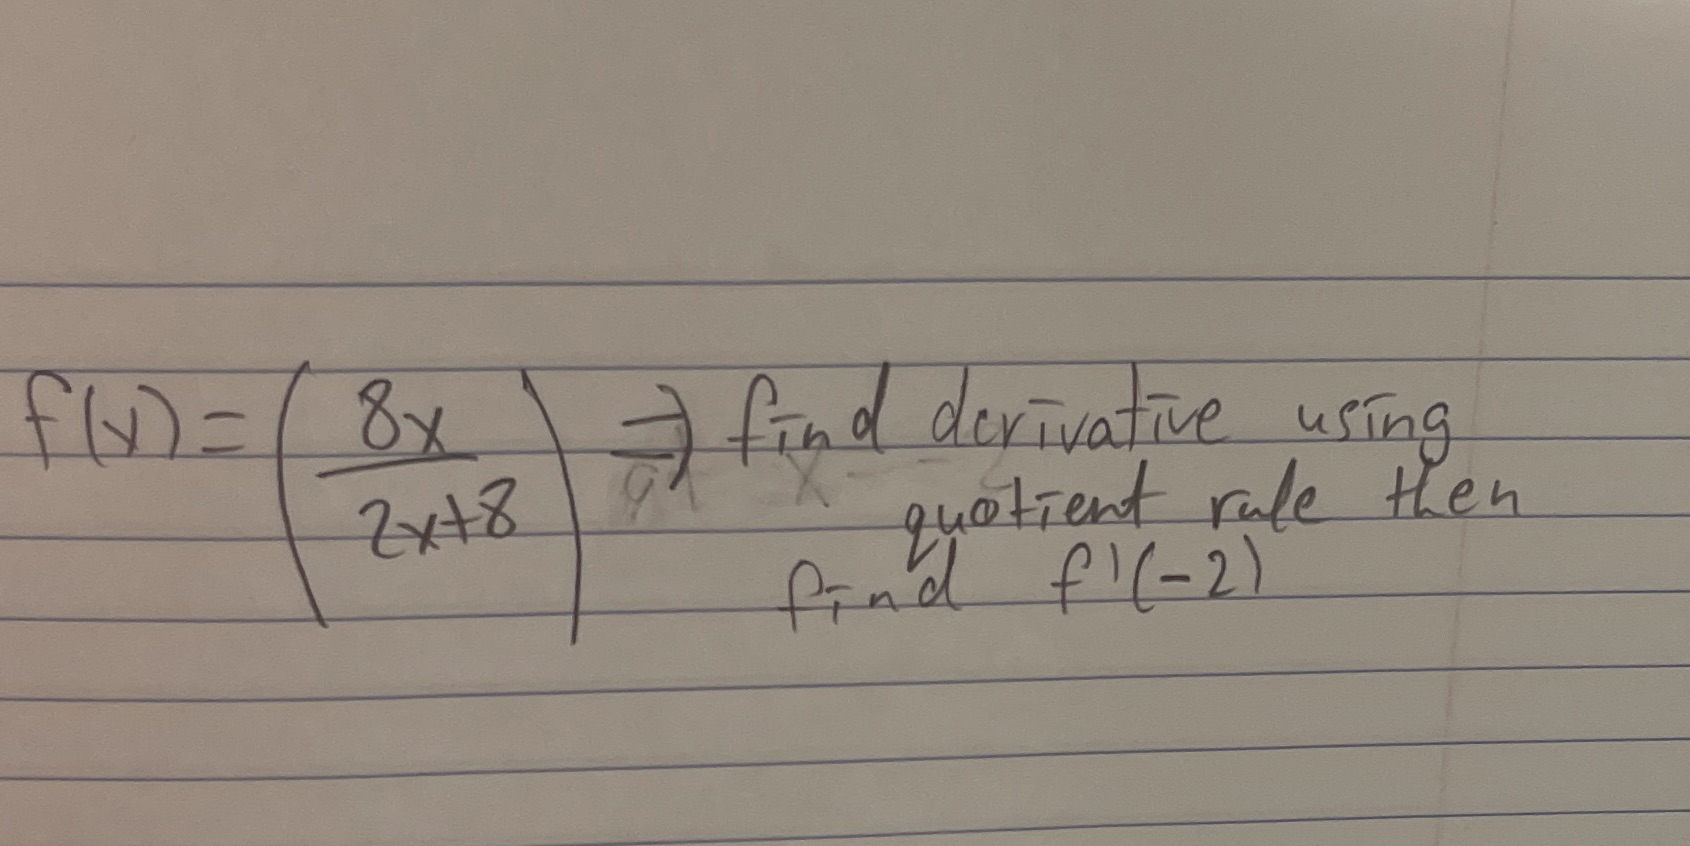 f(x) = (8x / 2x+8) ⇒ find derivative using
quotient rule then
find f'(-2)